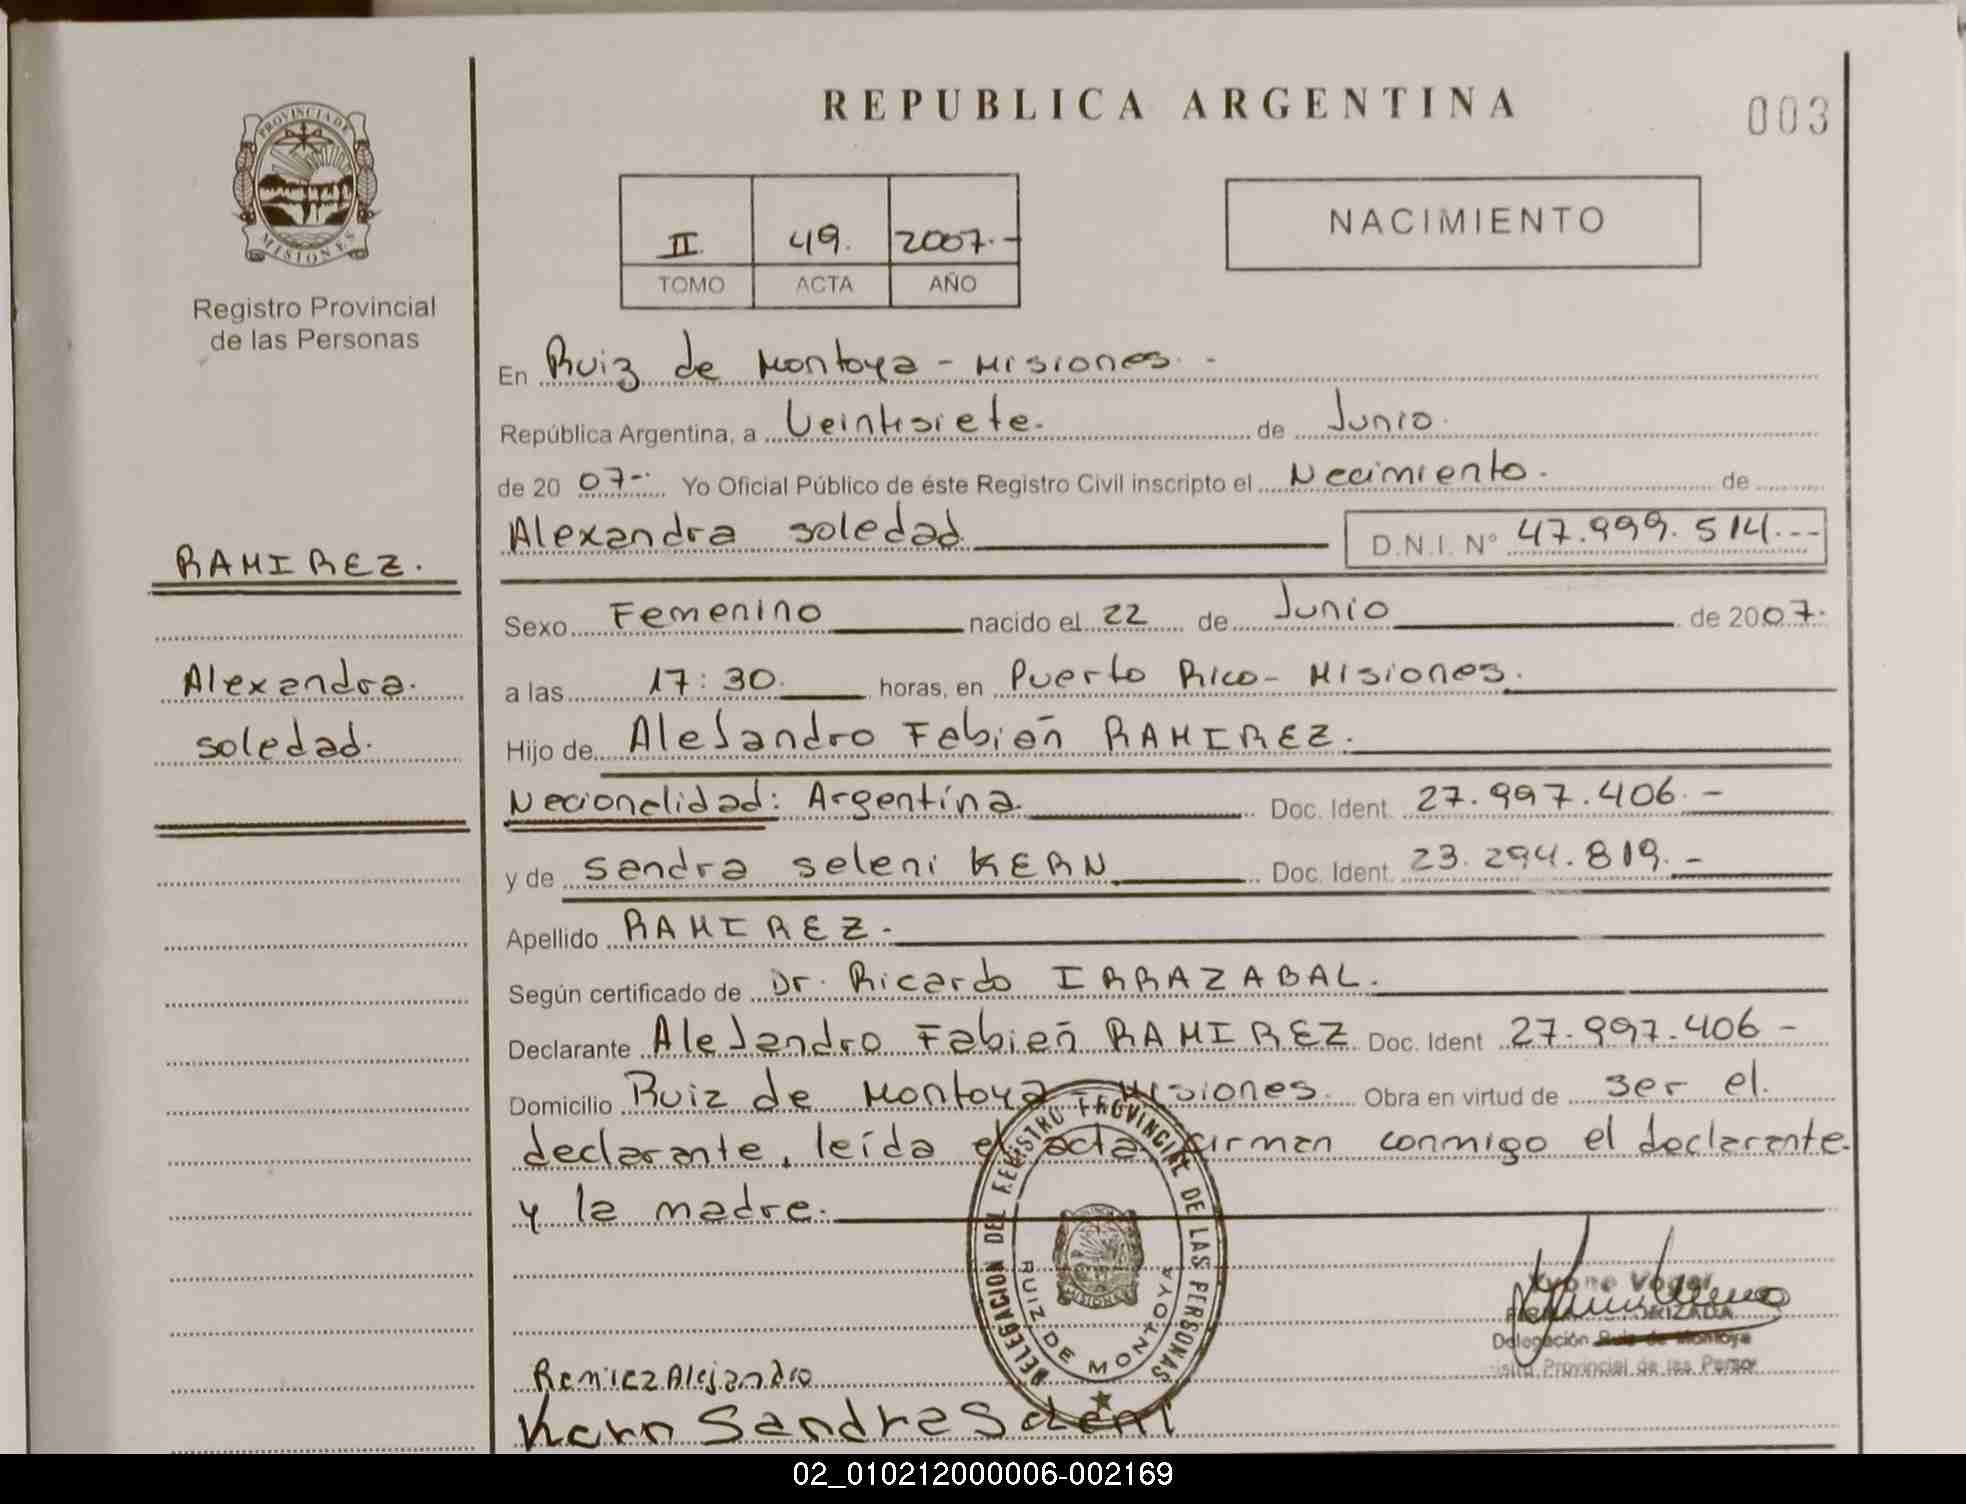 REPUBLICA ARGENTINA
003
PROVINCIA DE
MISIONES
Registro Provincial
de las Personas
II. 49. 2007.-
TOMO ACTA AÑO
NACIMIENTO
En Ruiz de Montoya - Misiones. -
República Argentina, a Veintisiete. de Junio.
de 20 07-. Yo Oficial Público de éste Registro Civil inscripto el Nacimiento. de
Alexandra Soledad. D.N.I. Nº 47.999.514.--
RAMIREZ.
Alexandra.
Soledad.
Sexo Femenino nacido el 22 de Junio de 2007.
a las 17:30. horas, en Puerto Rico - Misiones.
Hijo de Alejandro Fabián RAMIREZ.
Nacionalidad: Argentina. Doc. Ident. 27.997.406.-
y de Sandra Seleni KERN Doc. Ident. 23.294.819.-
Apellido RAMIREZ.
Según certificado de Dr. Ricardo IRRAZABAL.
Declarante Alejandro Fabián RAMIREZ Doc. Ident 27.997.406-
Domicilio Ruiz de Montoya - Misiones. Obra en virtud de ser el
declarante, leída el acta firman conmigo el declarante
y la madre.
DELEGACION DEL REGISTRO PROVINCIAL DE LAS PERSONAS
RUIZ DE MONTOYA
MISIONES
Delegación Ruiz de Montoya
Provincial de las
Ramirez Alejandro
Kern Sandra Seleni
02_010212000006-002169